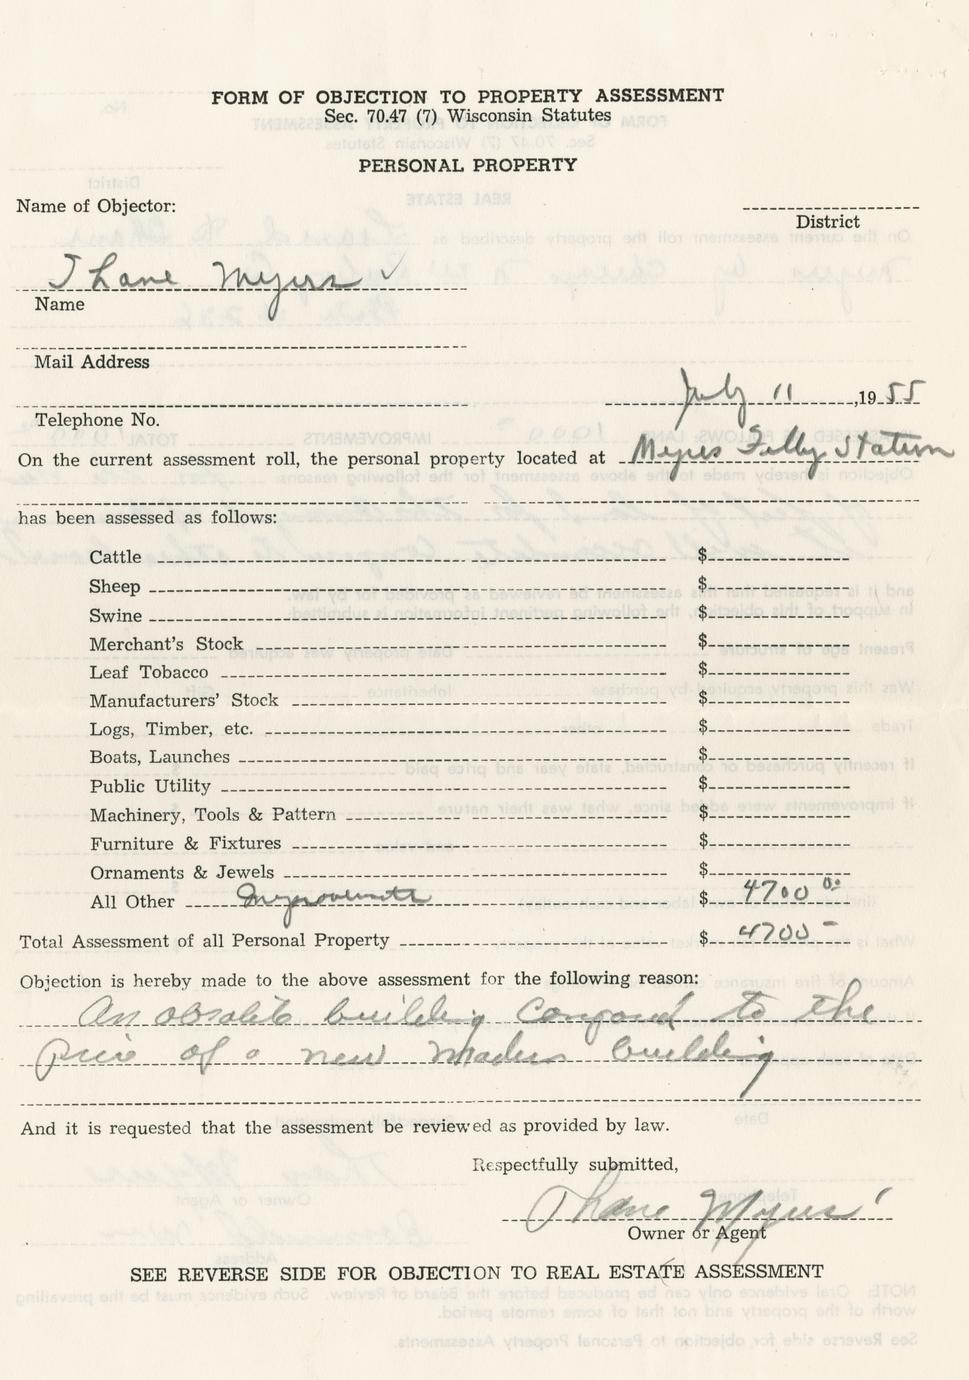 FORM OF OBJECTION TO PROPERTY ASSESSMENT
Sec. 70.47 (7) Wisconsin Statutes
PERSONAL PROPERTY
Name of Objector:
District
Thane Myers ✓
Name
Mail Address
July 11, 1955
Telephone No.
On the current assessment roll, the personal property located at Myers Fillg Station
has been assessed as follows:
Cattle $
Sheep $
Swine $
Merchant's Stock $
Leaf Tobacco $
Manufacturers' Stock $
Logs, Timber, etc. $
Boats, Launches $
Public Utility $
Machinery, Tools & Pattern $
Furniture & Fixtures $
Ornaments & Jewels $
All Other Improvements $ 4700 00
Total Assessment of all Personal Property $ 4700 -
Objection is hereby made to the above assessment for the following reason:
An obsolite building compard to the
price of a new modern building
And it is requested that the assessment be reviewed as provided by law.
Respectfully submitted,
Thane Myers
Owner or Agent
SEE REVERSE SIDE FOR OBJECTION TO REAL ESTATE ASSESSMENT